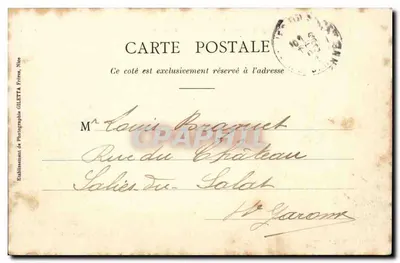 CARTE POSTALE
Ce coté est exclusivement réservé à l'adresse
Mr Louis Bragnet
Rue du Château
Salies-du-Salat
Hte Garonne
Etablissement de Photographie GILETTA Frères, Nice
CPAPHIL